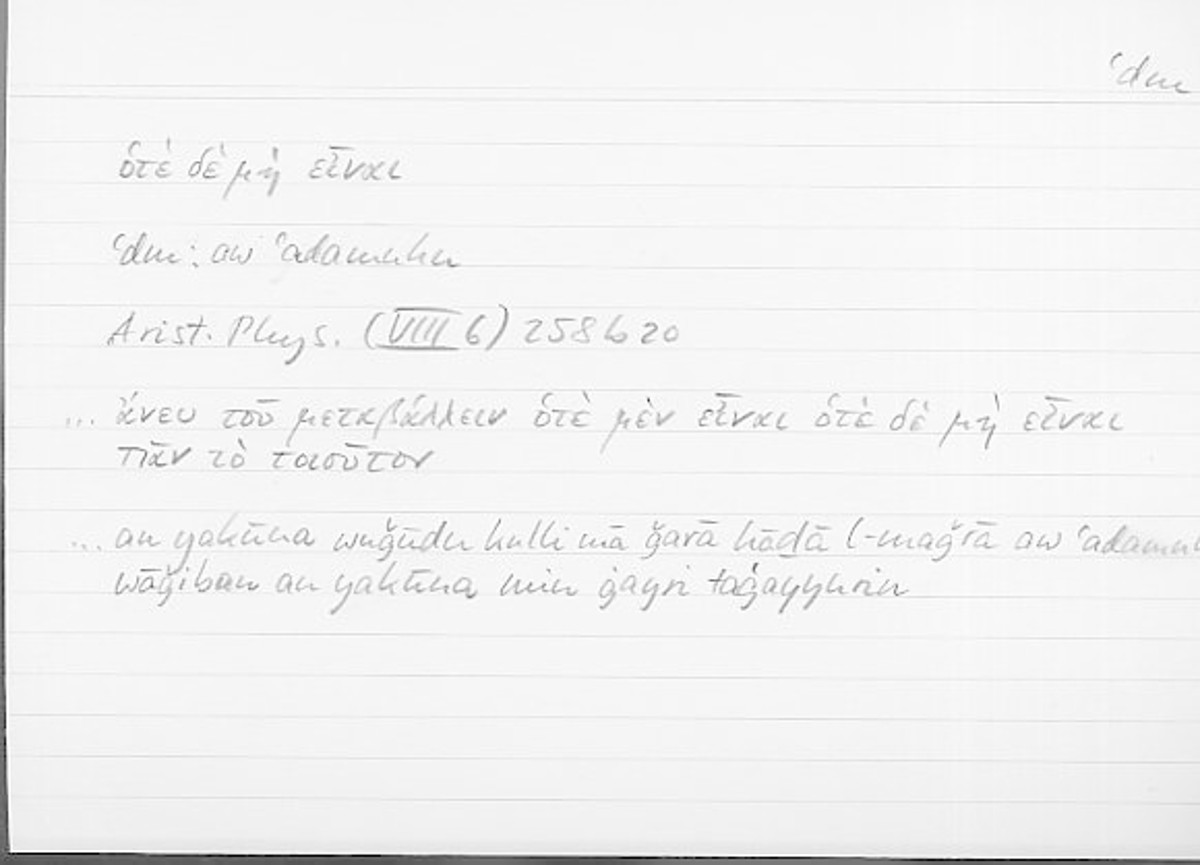 ʿdm
ὁτὲ δὲ μὴ εἶναι
ʿdm: aw ʿadamuhu
Arist. Phys. (VIII 6) 258b20
... ἄνευ τοῦ μεταβάλλειν ὁτὲ μὲν εἶναι ὁτὲ δὲ μὴ εἶναι
πᾶν τὸ τοιοῦτον
... an yakūna wuǧūdu kulli mā ǧarā hāḏā l-maǧrā aw ʿadamuh
wāǧiban an yakūna min ġayri taġayyurin